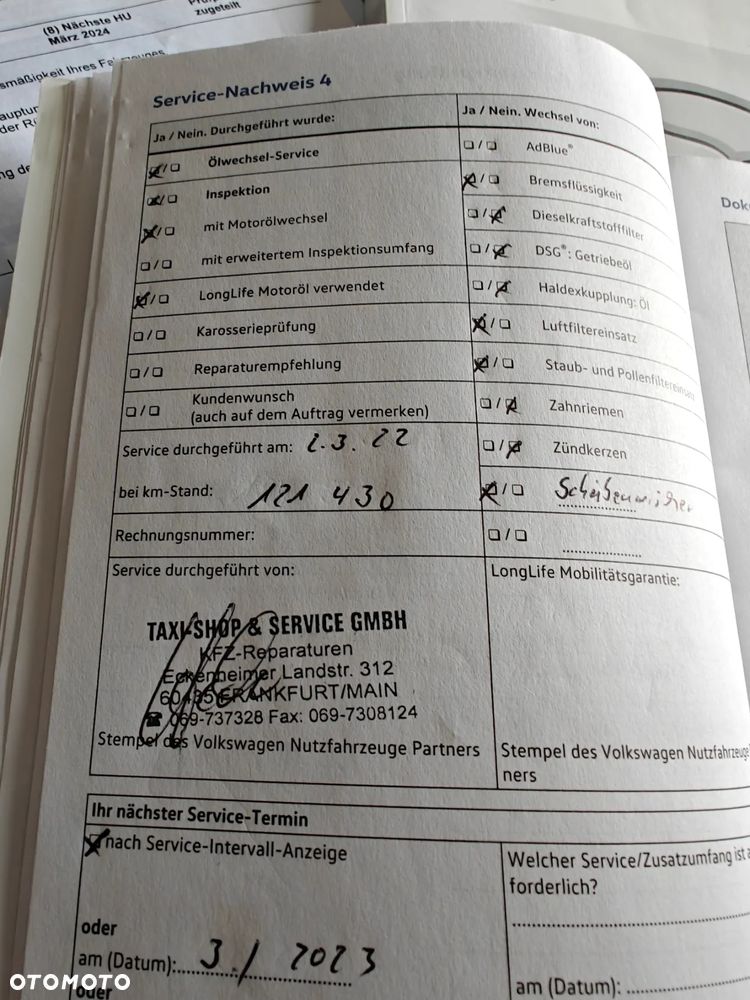 (8) Nächste HU
März 2024
zugeteilt
smäßigkeit Ihres Fahrzeuges
Service-Nachweis 4
Ja / Nein. Durchgeführt wurde:
Ölwechsel-Service
Inspektion
mit Motorölwechsel
mit erweitertem Inspektionsumfang
LongLife Motoröl verwendet
Karosserieprüfung
Reparaturempfehlung
Kundenwunsch
(auch auf dem Auftrag vermerken)
Service durchgeführt am: 2.3.22
bei km-Stand: 121 430
Rechnungsnummer:
Service durchgeführt von:
TAXI-SHOP & SERVICE GMBH
KFZ-Reparaturen
Eckenheimer Landstr. 312
60435 FRANKFURT/MAIN
☎ 069-737328 Fax: 069-7308124
Stempel des Volkswagen Nutzfahrzeuge Partners
Ja / Nein. Wechsel von:
AdBlue®
Bremsflüssigkeit
Dieselkraftstofffilter
DSG®: Getriebeöl
Haldexkupplung: Öl
Luftfiltereinsatz
Staub- und Pollenfiltereinsatz
Zahnriemen
Zündkerzen
Scheibenwischer
LongLife Mobilitätsgarantie:
Stempel des Volkswagen Nutzfahrzeuge
ners
Ihr nächster Service-Termin
nach Service-Intervall-Anzeige
oder
am (Datum): 3./2023
oder
Welcher Service/Zusatzumfang ist
forderlich?
am (Datum):
Doku
OTOMOTO